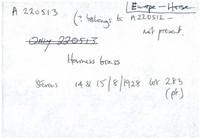 Europe - Horse
A 220513
(? belongs to A220512 -
not present.
Only 220513
Harness brass
Stevens 14 & 15/8/1928 lot 283
(pt)